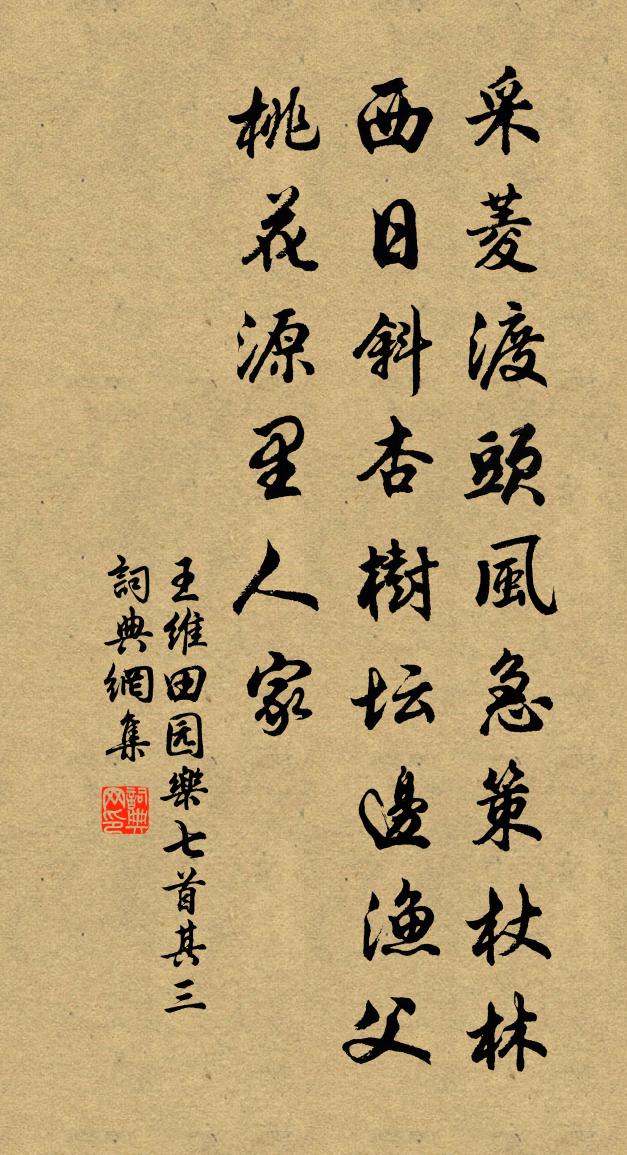 采菱渡頭風急策杖林
西日斜杏樹坛邊漁父
桃花源里人家
王維田园樂七首其三
詞典網集
詞典网印